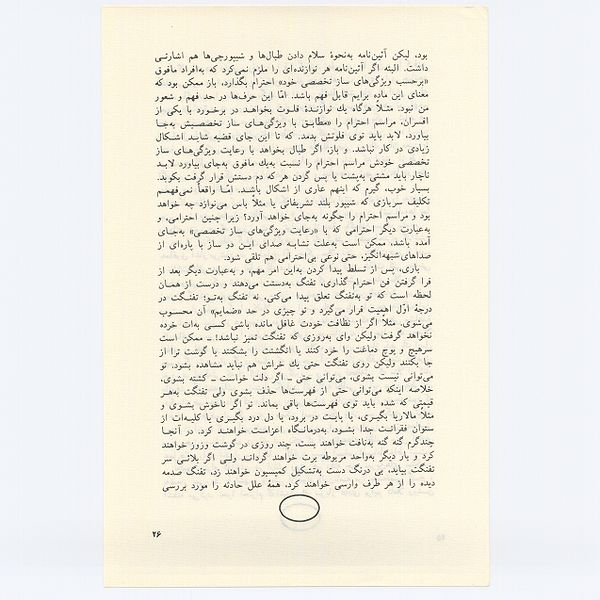 بود، لیکن آئین‌نامه به‌نحوهٔ سلام دادن طبال‌ها و شیپورچی‌ها هم اشارتـی
داشت. البته اگر آئین‌نامه هر نوازنده‌ای را ملزم نمی‌کرد که به‌افراد مافوق
«برحسب ویژگی‌های ساز تخصصی خود» احترام بگذارد، باز ممکن بود که
معنای این ماده برایم قابل فهم باشد. امّا این حرف‌ها در حد فهم و شعور
من نبود. مثـلاً هرگاه یك نوازنـدهٔ فلـوت بخواهـد در برخـورد با یکی از
افسران، مراسم احترام را «مطابـق با ویژگی‌هـای ساز تخصصیـش به‌جـا
بیاورد، لابد باید توی فلوتش بدمد. که تا این جای قضیه شاید اشـکال
زیادی در کار نباشد. و باز، اگر طبال بخواهد با رعایت ویژگی‌های ساز
تخصصی خودش مراسم احترام را نسبت به‌یك مافوق به‌جای بیاورد لابـد
ناچار باید مشتی به‌پشت یا پس گردن هر که دم دستش قرار گرفت بکوبد.
بسیار خوب، گیرم که اینهم عاری از اشکال باشـد. امّـا واقعاً نمی‌فهمـم
تکلیف سربازی که شیپور بلند تشریفاتی یا مثلاً باس می‌نوازد چه خواهد
بود و مراسم احترام را چگونه به‌جای خواهد آورد؟ زیرا چنین احترامی، و
به‌عبارت دیگر احترامی که با «رعایت ویژگی‌های ساز تخصصی» به‌جـای
آمده باشد، ممکن است به‌علت تشابـه صدای ایـن دو ساز با پاره‌ای از
صداهای شبهه‌انگیز، حتی نوعی بی‌احترامی هم تلقی شود.
باری، پس از تسلط پیدا کردن به‌این امر مهم، و به‌عبارت دیگر بعد از
فرا گرفتن فن احترام گذاری، تفنگ به‌دستت می‌دهند و درست از همـان
لحظه است که تو به‌تفنگ تعلق پیدا می‌کنی، نه تفنگ به‌تـو؛ تفنـگت در
درجهٔ اوّل اهمیت قرار می‌گیرد و تو چیزی در حد «ضمایم» آن محسـوب
می‌شوی. مثلاً اگر از نظافت خودت غافل مانده باشی کسـی به‌ات خرده
نخواهد گرفت ولیکن وای به‌روزی که تفنگت تمیز نباشد! ـ ممکن است
سرهیچ و پوچ دماغت را خرد کنند یا انگشتت را بشکنند یا گوشت ترا از
جا بکنند ولیکن روی تفنگت حتی یك خراش هم نباید مشاهده بشود. تو
می‌توانی نیست بشوی، می‌توانی حتی ـ اگر دلت خواست ـ کشته بشوی،
خلاصه اینکه می‌توانی حتی از فهرست‌ها حذف بشوی ولی تفنگت به‌هـر
قیمتی که شده باید توی فهرست‌ها باقی بماند. تو اگر ناخوش بشـوی و
مثلاً مالاریا بگیـری، یا پایـت در برود، یا دل درد بگیـری یا کلیـه‌ات از
ستوان فقراتـت جدا بشـود، به‌درمانـگاه اعزامـت خواهنـد کرد. در آنجـا
چندگرم گنه گنه به‌نافت خواهند بست، چند روزی در گوشت وزوز خواهند
کرد و بار دیگر به‌واحد مربوطه برت خواهند گردانـد ولـی اگر بلائـی سر
تفنگت بیاید، بی درنگ دست به‌تشکیل کمیسیون خواهند زد، تفنگ صدمه
دیده را از هر طرف وارسی خواهند کرد، همهٔ علل حادثه را مورد بررسی
۲۶